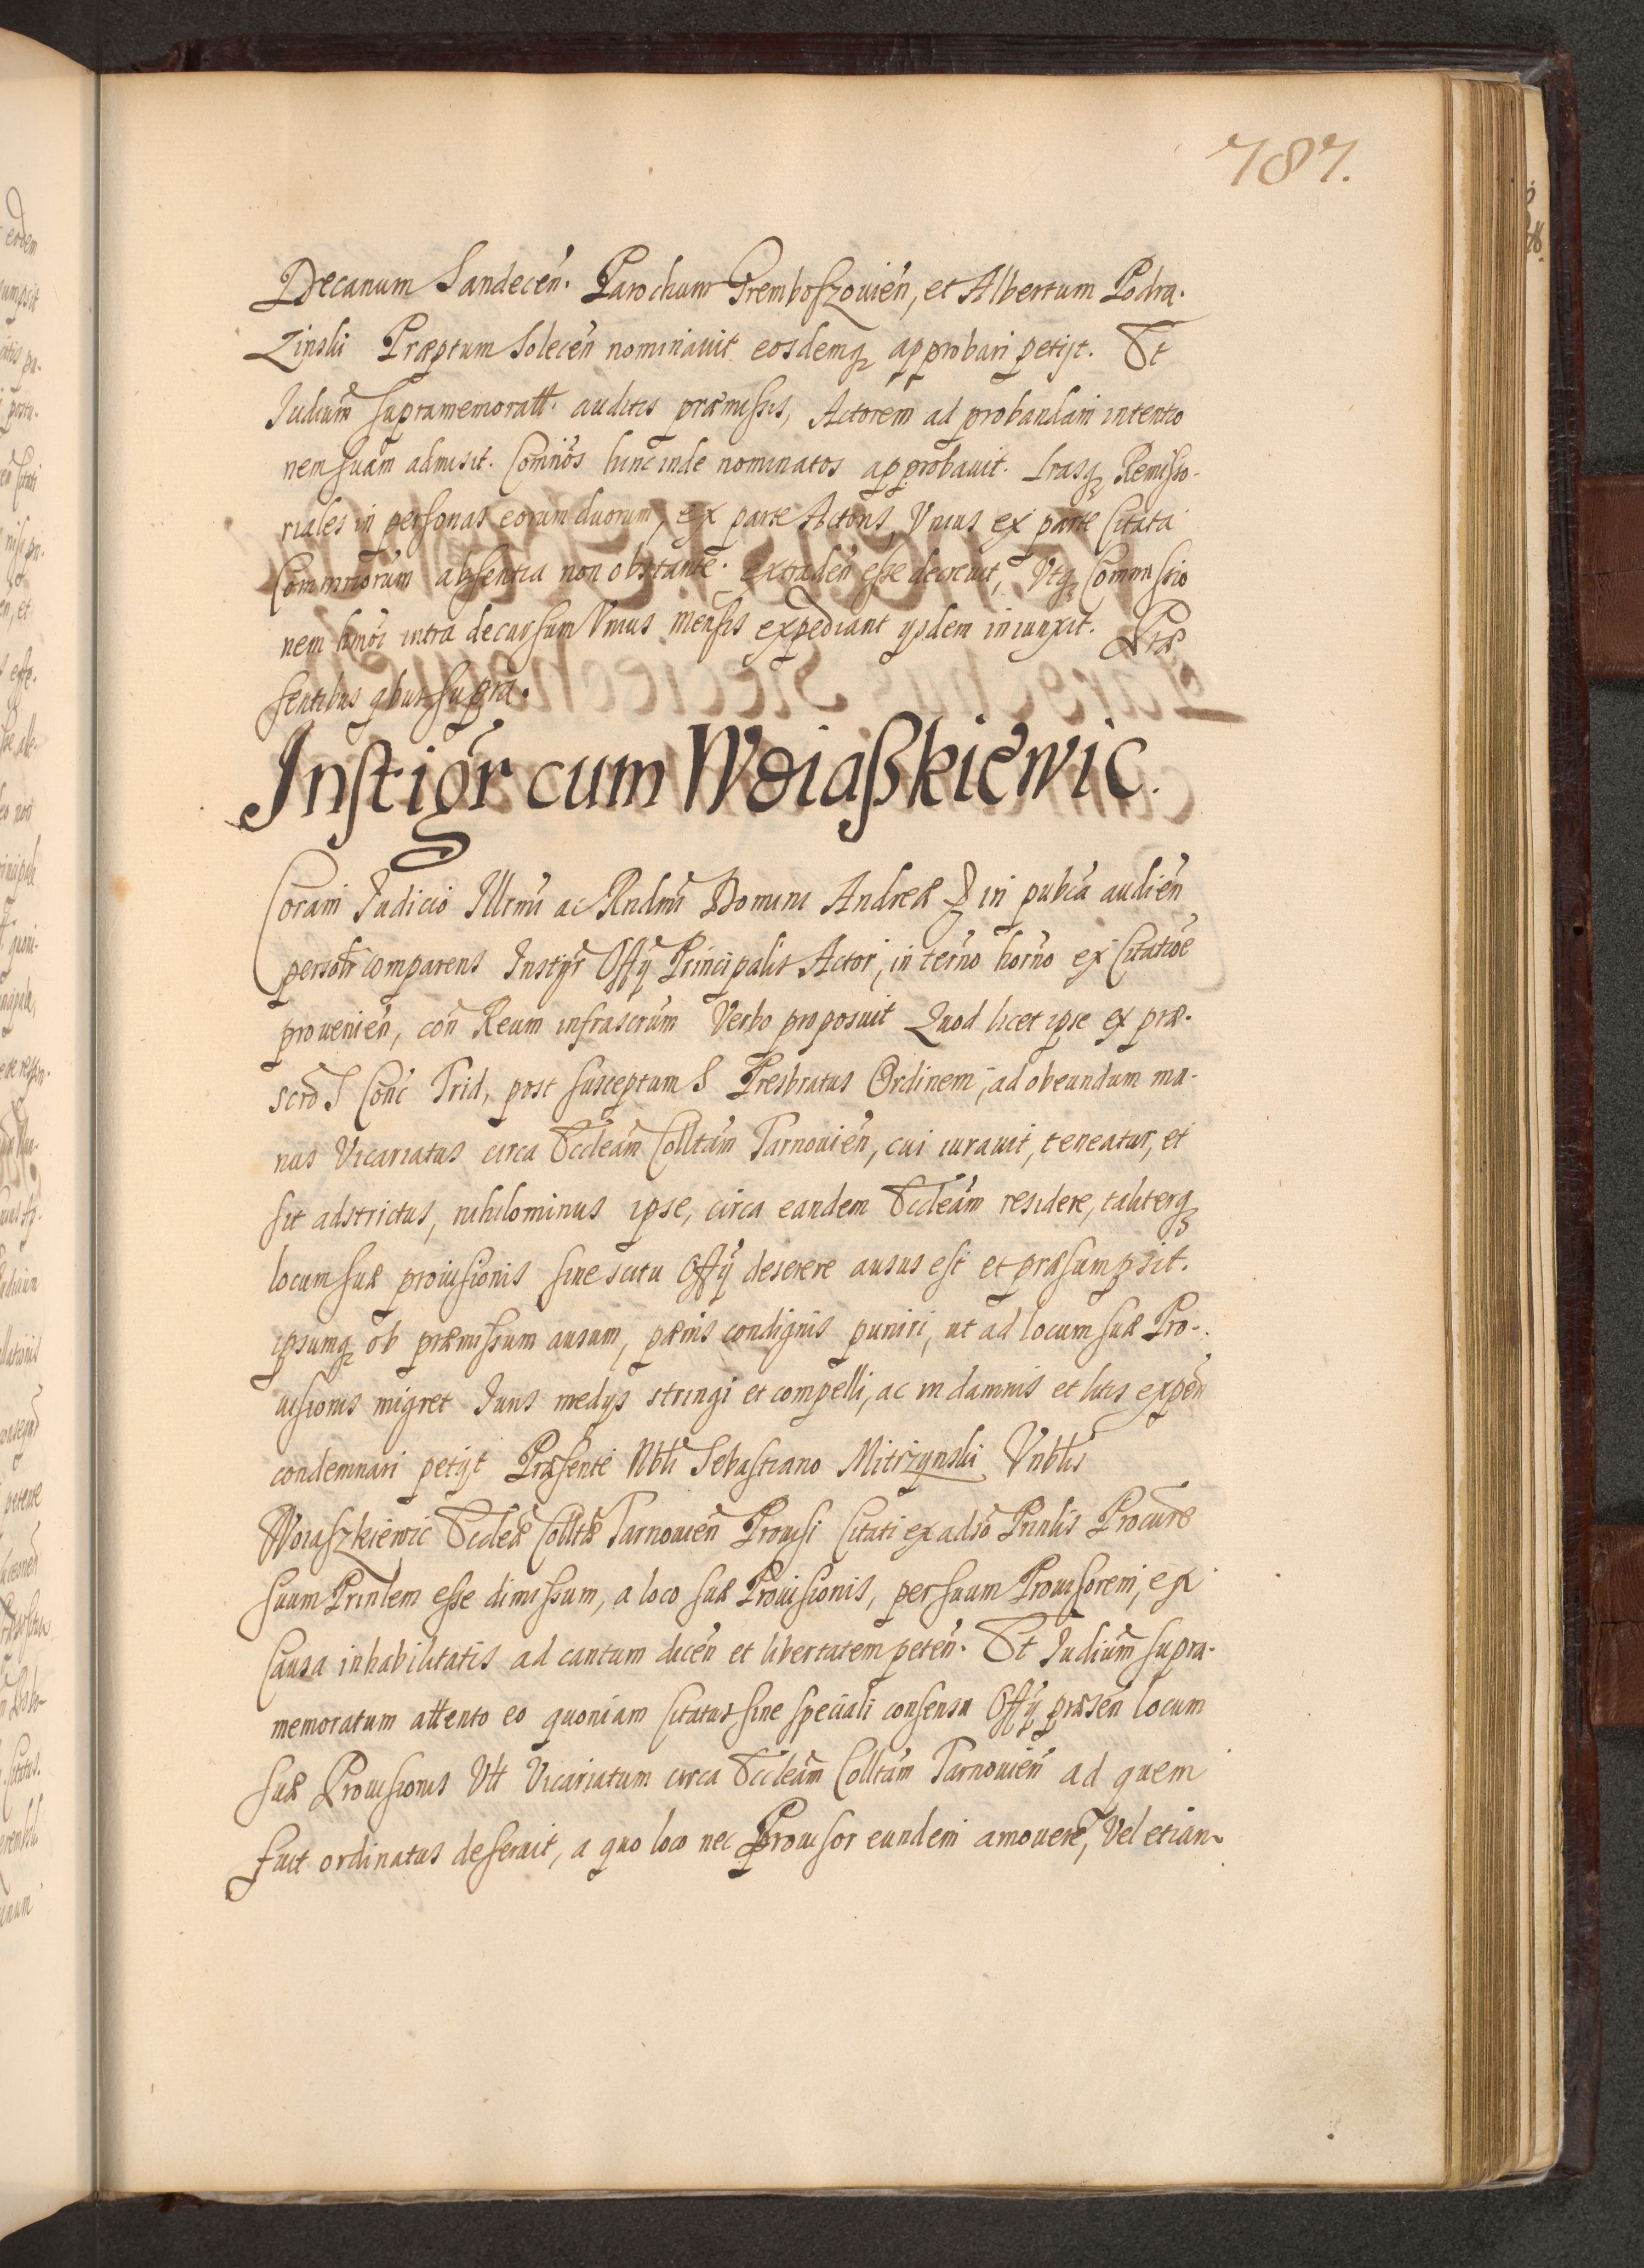 787.
Decanum Sandecen̄. Parochum Gremboszouień, et Albertum Podra.
Zinski Præptum Solecen̄ nominauit eosdemq̨ approbari petijt. Et
Iudiūm supramemoratt. auditis præmissis, Actorem ad probandam intentio
nem suam admisit. Comn̄os hinc inde nominatos approbauit. Lrasq̨ Remisso-
riales in personas eorum duorum, ex parte Actoris, Vnius ex parte Citata
Commn̄orum absentia non obstante. extraden̄ esse decreuit, Vtq̨ Commissio
nem hmōi intra decursum Vnius Mensis expediant ijsdem iniunxit. Præ
sentibus qbus supra.
Instigr̄ cum Woiaßkiewic.
Coram Iudicio Illrmī ac Rndmī Domini Andreæ in pubcā audień
personr̄ comparens Instgr̄ Offy Principalis Actor, in terno horno ex Citatōe
prouenień, con̄ Reum infrascrūm Verbo proposuit Quod licet ipse ex præ.
scrō S Conc̄ Trid, post susceptum S Presbratus Ordinem, ad obeundum ma-
nus Vicariatus circa Eccleām Colltām Tarnouień, cui iurauit, teneatur, et
sit adstrictus, nihilominus ipse, circa eandem Eccleām residere, taliterq̨
locum suæ prouisionis sine scitu Offy deserere ausus est et præsumpsit.
ipsumq̨ ob præmissum ausum, pænis condignis puniri, ut ad locum suæ Pro-
uisionis migret Iuris medijs stringi et compelli, ac in damnis et litis expen̄
condemnari petijt Præsente Nbli Sebastiano Mitrzynski Vnblis
Woiaszkiewic Eccleæ Colltæ Tarnouień Prouisi Citati ex adsō Prinlis Procurē
suum Prinlem esse dimissum, a loco suæ Prouisionis, per suum Prouisorem, ex
Causa inhabilitatis ad cantum dicen̄ et libertatem peten̄. Et Iudiūm supra-
memoratum attento eo quoniam Citatus sine speciali consensu Offy præsen̄ locum
suæ Prouisionis Vtt Vicariatum circa Eccleām Colltām Tarnouień ad quem
fuit ordinatus deseruit, a quo loco nec Prouisor eundem amouere, Vel etiam